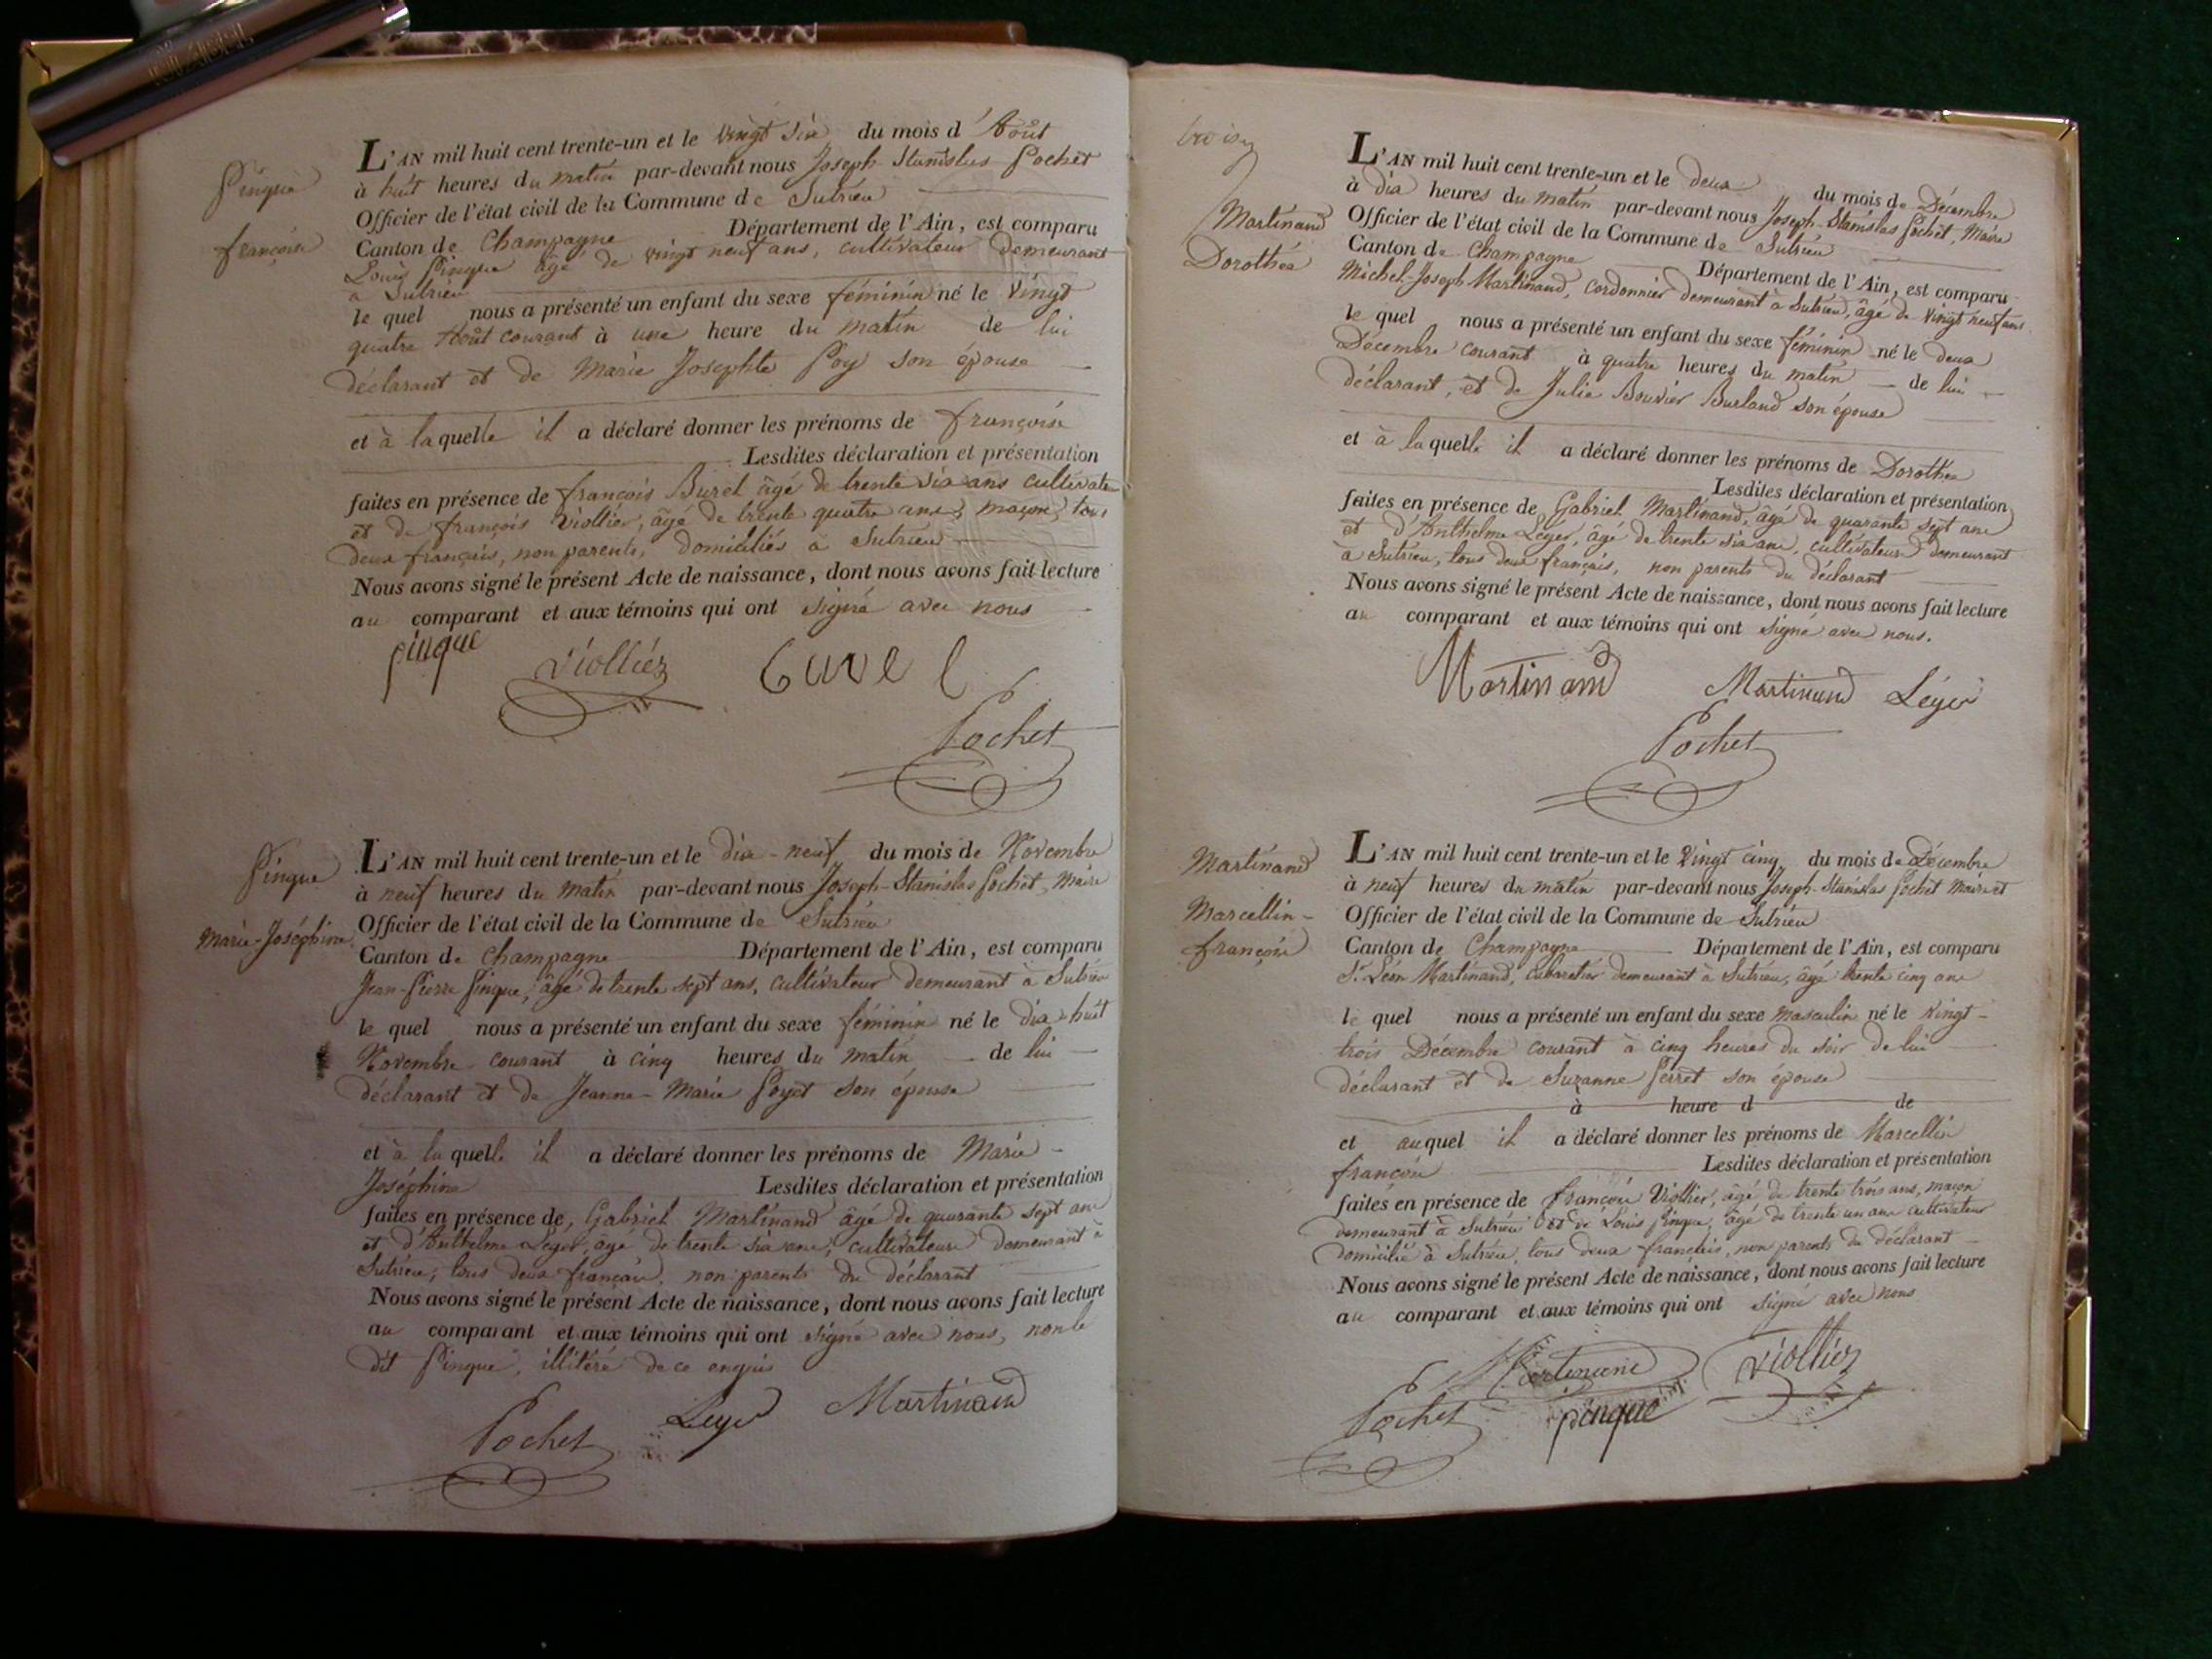 Pingue
françoise
L'AN mil huit cent trente-un et le vingt six du mois d'Août
à huit heures du matin par-devant nous Joseph-Stanislas Pochet
Officier de l'état civil de la Commune de Sutrieu
Canton de Champagne Département de l'Ain, est comparu
Louis Pingue âgé de vingt neuf ans, cultivateur demeurant
à Sutrieu
le quel nous a présenté un enfant du sexe féminin né le vingt
quatre Août courant à une heure du matin de lui
déclarant et de Marie Josephte Poy son épouse
et à laquelle il a déclaré donner les prénoms de françoise
Lesdites déclaration et présentation
faites en présence de françois Buret âgé de trente six ans cultivate
et de françois Viollier, âgé de trente quatre ans, maçon, tous
deux français, non parents, domiciliés à Sutrieu
Nous avons signé le présent Acte de naissance, dont nous avons fait lecture
au comparant et aux témoins qui ont signé avec nous
pingue
Viollier
Pochet
Pingue
Marie-Joséphine
L'AN mil huit cent trente-un et le dix-neuf du mois de Novembre
à neuf heures du matin par-devant nous Joseph-Stanislas Pochet, Maire
Officier de l'état civil de la Commune de Sutrieu
Canton de Champagne Département de l'Ain, est comparu
Jean-Pierre Pingue, âgé de trente sept ans, cultivateur demeurant à Sutrieu
le quel nous a présenté un enfant du sexe féminin né le dix-huit
Novembre courant à cinq heures du matin de lui
déclarant et de Jeanne-Marie Poyet son épouse
et à laquelle il a déclaré donner les prénoms de Marie-
Joséphine Lesdites déclaration et présentation
faites en présence de Gabriel Martinand âgé de quarante sept ans
et d'Anthelme Léger, âgé de trente six ans, cultivateurs demeurant à
Sutrieu, tous deux français, non parents du déclarant
Nous avons signé le présent Acte de naissance, dont nous avons fait lecture
au comparant et aux témoins qui ont signé avec nous, non le
dit Pingue, illitéré de ce enquis
Pochet
Leger
Martinand
Martinand
Dorothée
L'AN mil huit cent trente-un et le deux du mois de Décembre
à dix heures du matin par-devant nous Joseph-Stanislas Pochet, Maire
Officier de l'état civil de la Commune de Sutrieu
Canton de Champagne Département de l'Ain, est comparu
Michel-Joseph Martinand, cordonnier demeurant à Sutrieu, âgé de vingt neuf ans
le quel nous a présenté un enfant du sexe féminin né le deux
Décembre courant à quatre heures du matin de lui
déclarant, et de Julie Bouvier Burland son épouse
et à laquelle il a déclaré donner les prénoms de Dorothée
Lesdites déclaration et présentation
faites en présence de Gabriel Martinand, âgé de quarante sept ans
et d'Anthelme Léger, âgé de trente six ans, cultivateurs demeurant
à Sutrieu, tous deux français, non parents du déclarant
Nous avons signé le présent Acte de naissance, dont nous avons fait lecture
au comparant et aux témoins qui ont signé avec nous.
Martinand
Martinand
Léger
Pochet
Martinand
Marcellin-
françois
L'AN mil huit cent trente-un et le vingt cinq du mois de Décembre
à neuf heures du matin par-devant nous Joseph-Stanislas Pochet Maire et
Officier de l'état civil de la Commune de Sutrieu
Canton de Champagne Département de l'Ain, est comparu
Sr. Léon Martinand, Cabaretier demeurant à Sutrieu, âgé trente cinq ans
le quel nous a présenté un enfant du sexe masculin né le vingt-
trois Décembre courant à cinq heures du soir de lui
déclarant et de Suzanne Perret son épouse
à heure d de
et auquel il a déclaré donner les prénoms de Marcellin
françois Lesdites déclaration et présentation
faites en présence de françois Viollier, âgé de trente trois ans, maçon
demeurant à Sutrieu et de Louis Pingue, âgé de trente un ans cultivateur
domicilié à Sutrieu, tous deux français, non parents du déclarant
Nous avons signé le présent Acte de naissance, dont nous avons fait lecture
au comparant et aux témoins qui ont signé avec nous
Martinand
Viollier
Pochet
pingue